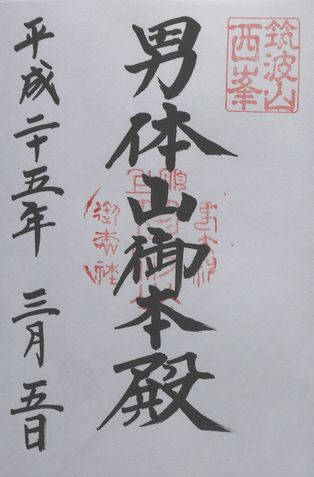 筑波山
西峯
男体山御本殿
平成二十五年 三月五日